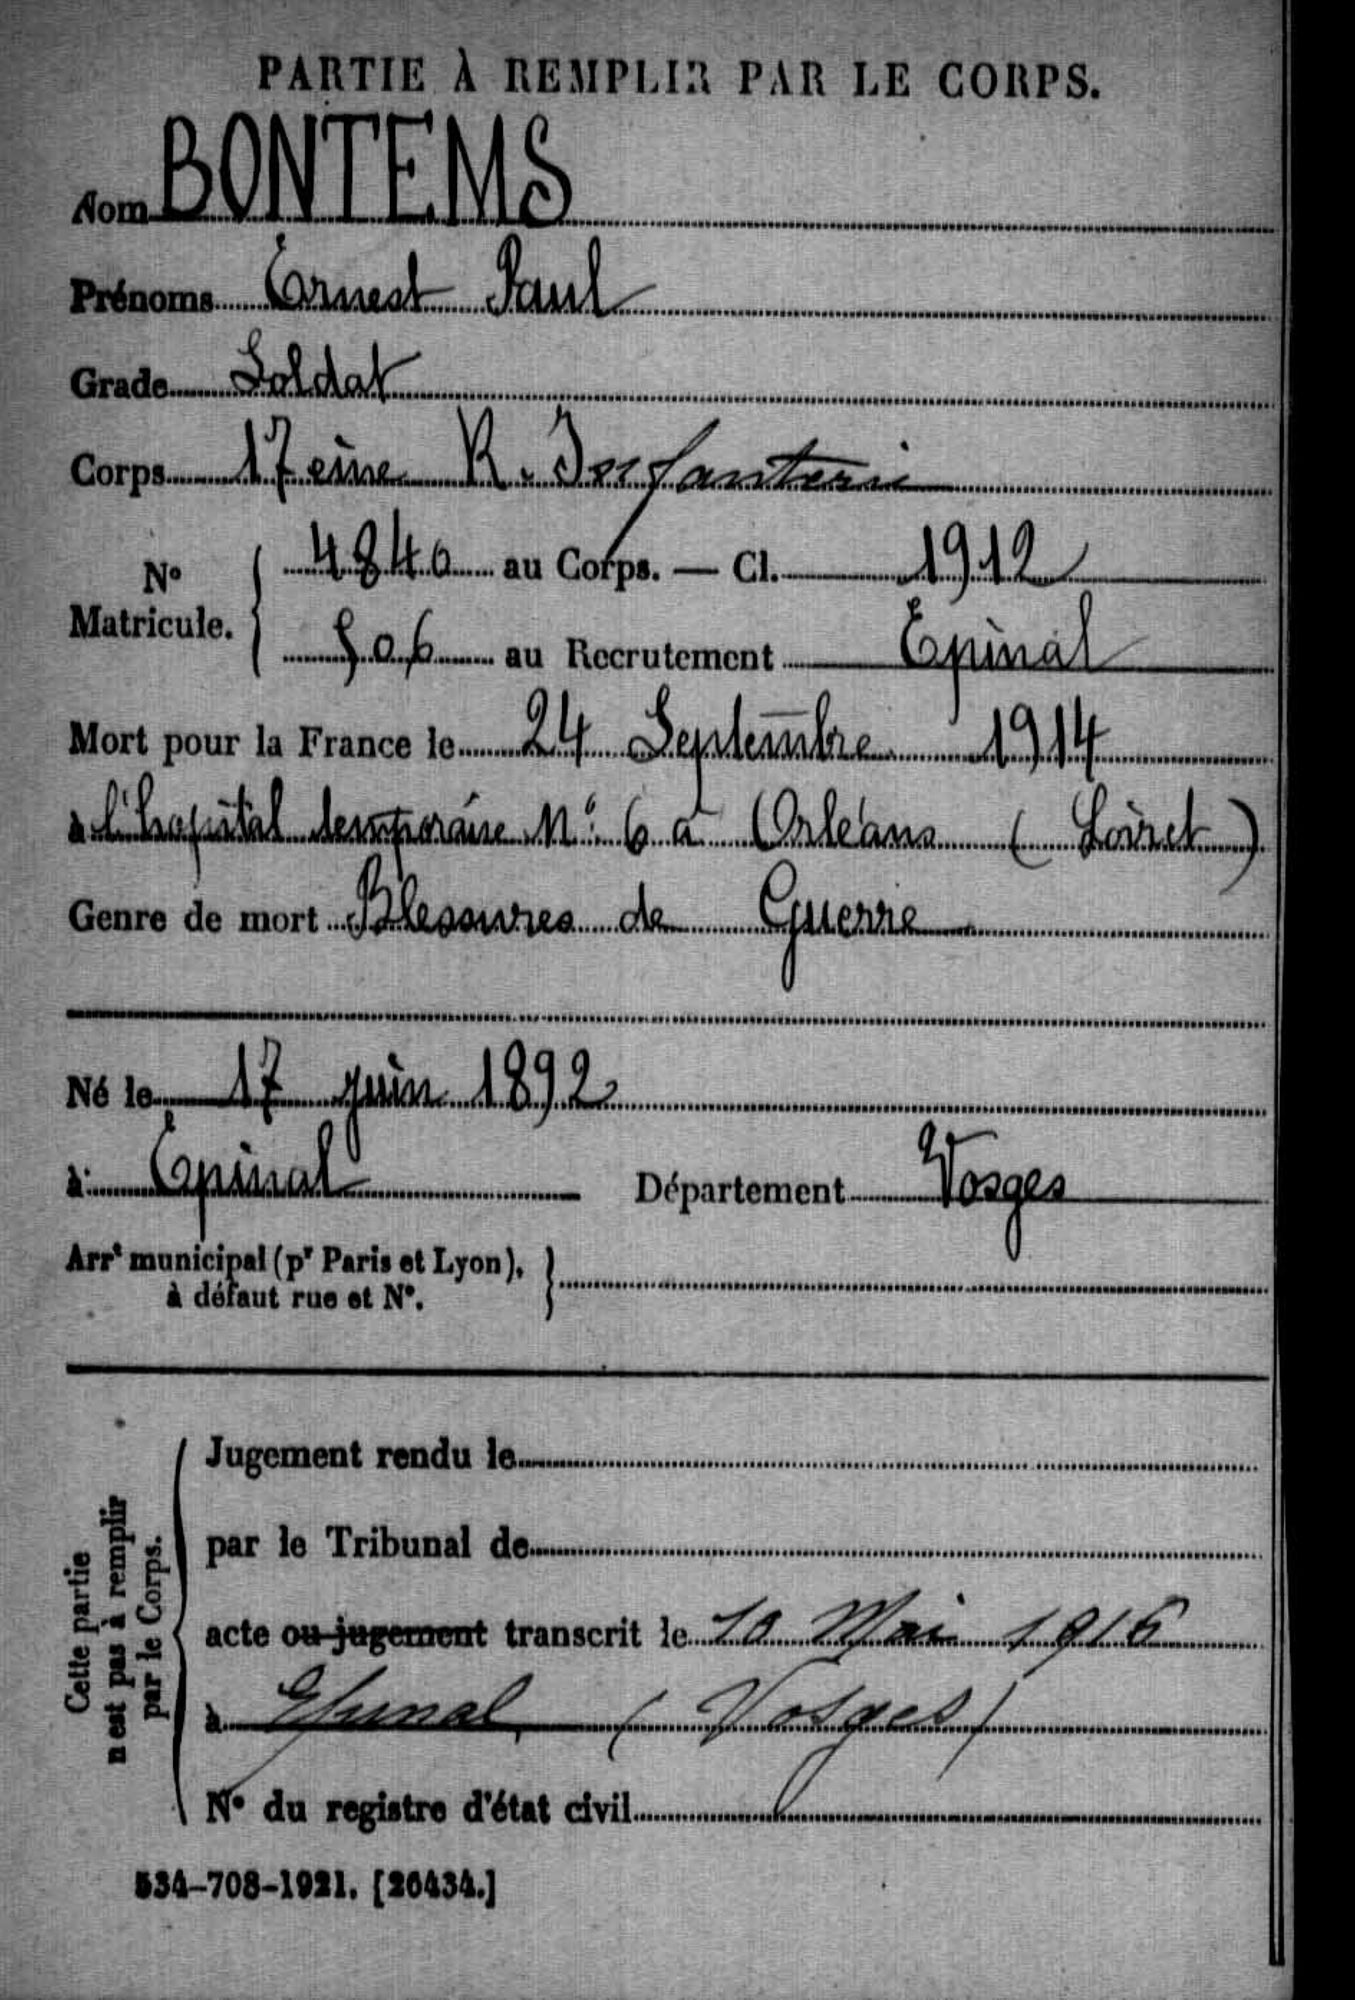 PARTIE À REMPLIR PAR LE CORPS.
Nom BONTEMS
Prénoms Ernest Paul
Grade Soldat
Corps 17eme R. Infanterie
N° Matricule. 4840 au Corps. — Cl. 1912
506 au Recrutement Epinal
Mort pour la France le 24 Septembre 1914
à l'hopital temporaire N° 6 à Orléans (Loiret)
Genre de mort Blessures de Guerre
Né le 17 juin 1892
à Epinal Département Vosges
Arrt municipal (pr Paris et Lyon),
à défaut rue et N°.
Cette partie
n'est pas à remplir
par le Corps.
Jugement rendu le
par le Tribunal de
acte ou jugement transcrit le 10 Mai 1916
à Epinal (Vosges)
N° du registre d'état civil
534-708-1921. [26434.]